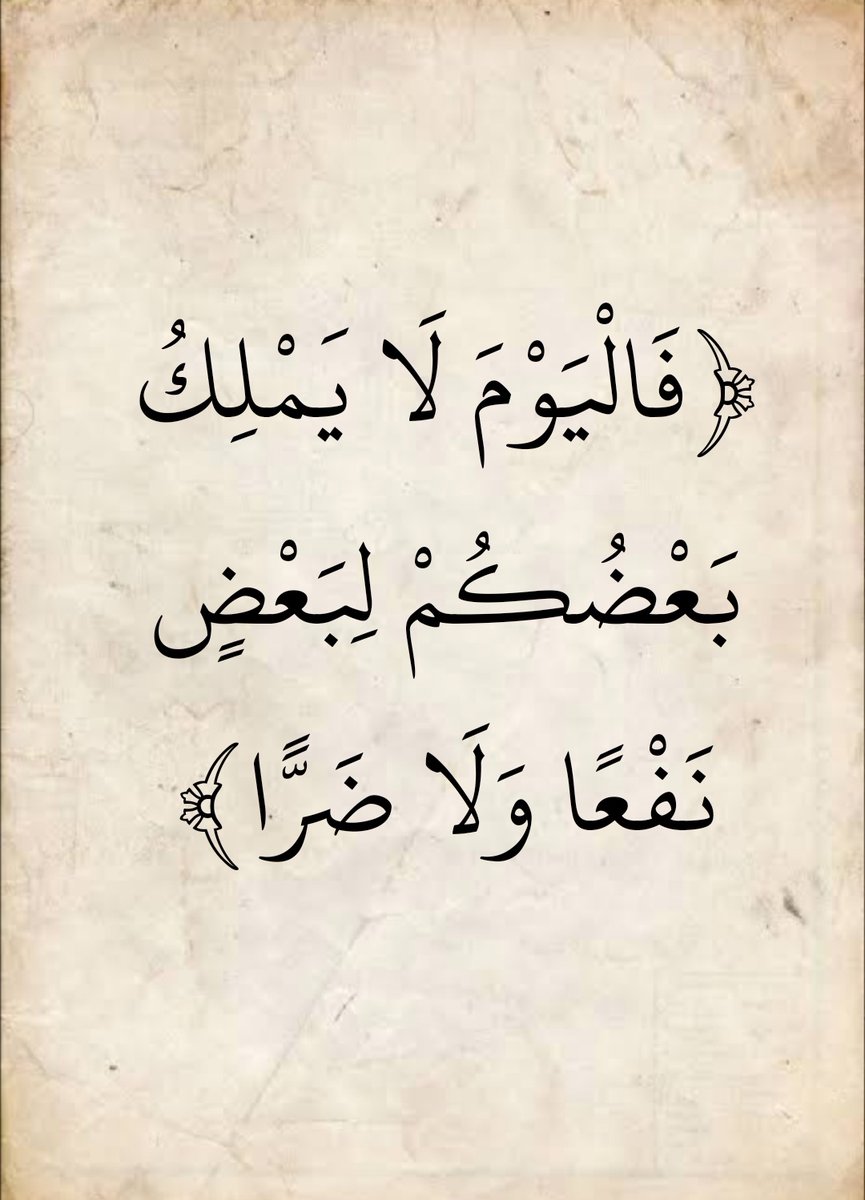 ﴿فَالْيَوْمَ لَا يَمْلِكُ
بَعْضُكُمْ لِبَعْضٍ
نَفْعًا وَلَا ضَرًّا﴾